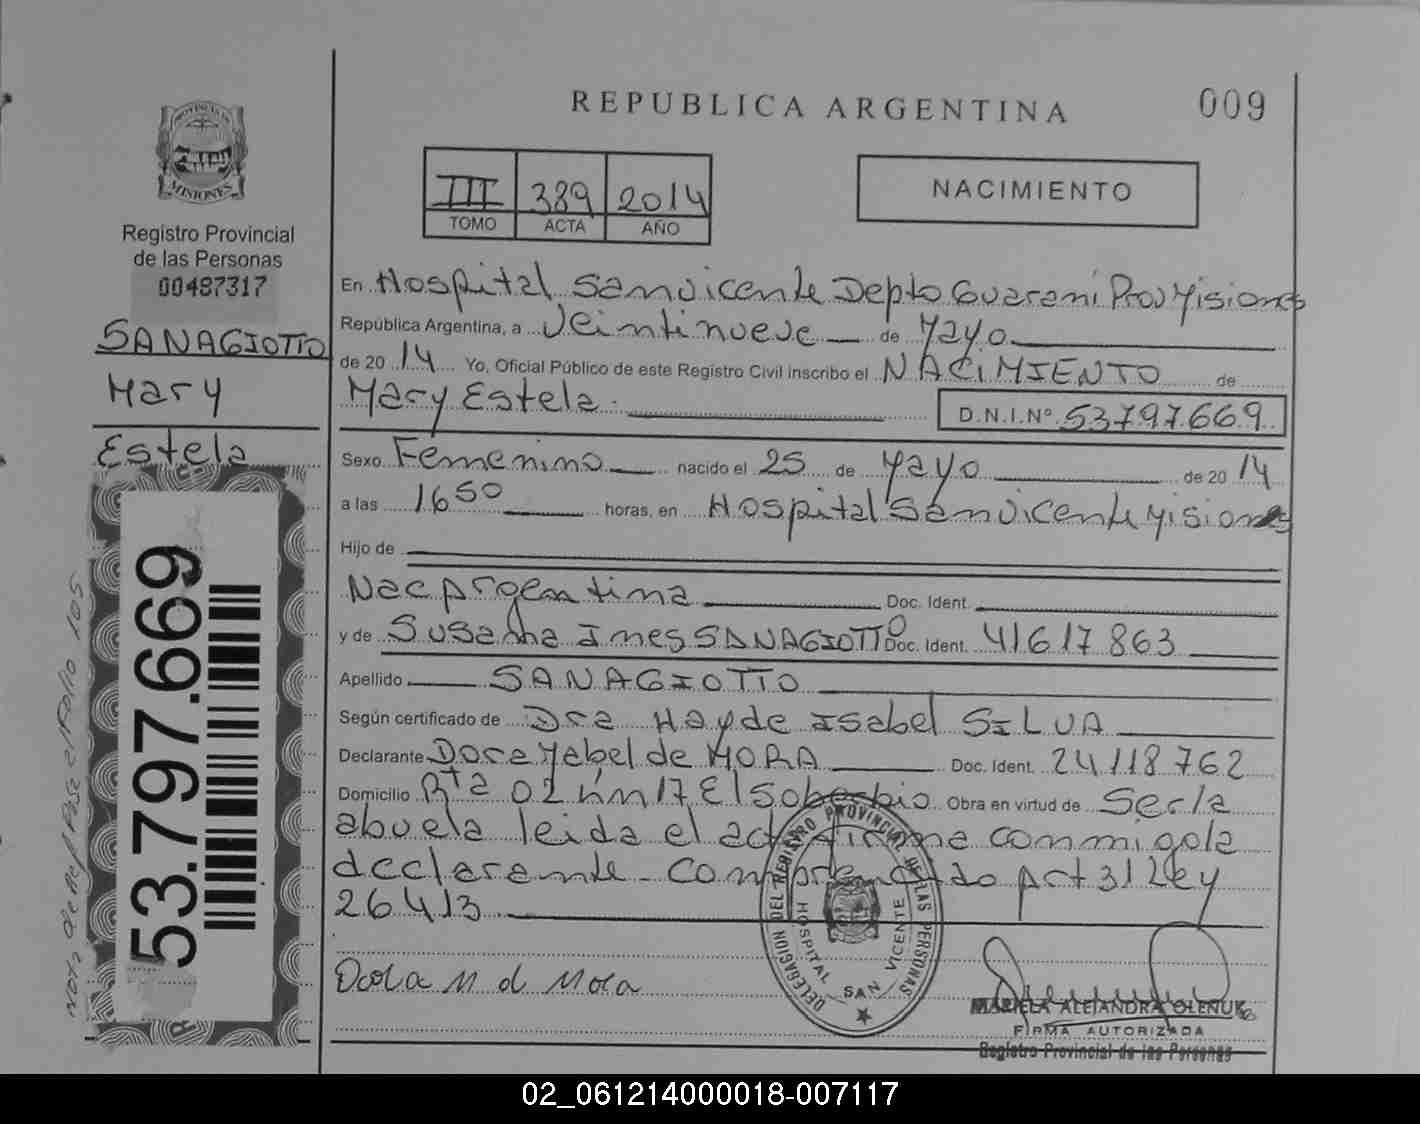 REPUBLICA ARGENTINA
009
PROVINCIA DE
MISIONES
Registro Provincial
de las Personas
00487317
SANAGIOTTO
Mary
Estela
53.797.669
III 389 2014
TOMO ACTA AÑO
NACIMIENTO
En Hospital San vicente Depto Guarani Prov Misiones
República Argentina, a Veintinueve de Mayo
de 20 14 Yo, Oficial Público de este Registro Civil inscribo el NACIMIENTO de
Mary Estela
D.N.I.Nº 53797669
Sexo Femenino nacido el 25 de Mayo de 20 14
a las 16 50 horas, en Hospital San vicente Misiones
Hijo de
Nac Argentina Doc. Ident.
y de Susana Ines SANAGIOTTO Doc. Ident. 41617863
Apellido SANAGIOTTO
Según certificado de Dra Hayde Isabel SILVA
Declarante Dora Mabel de MORA Doc. Ident. 24118762
Domicilio Rta 02 km 17 El Soberbio Obra en virtud de Ser la
abuela leida el acta firma conmigo la
declarante - Comprendido Art 31 Ley
26413
Dora M d Mora
DELEGACION DEL REGISTRO PROVINCIAL DE LAS PERSONAS
HOSPITAL SAN VICENTE
MARIELA ALEJANDRA OLENUK
FIRMA AUTORIZADA
Registro Provincial de las Personas
02_061214000018-007117